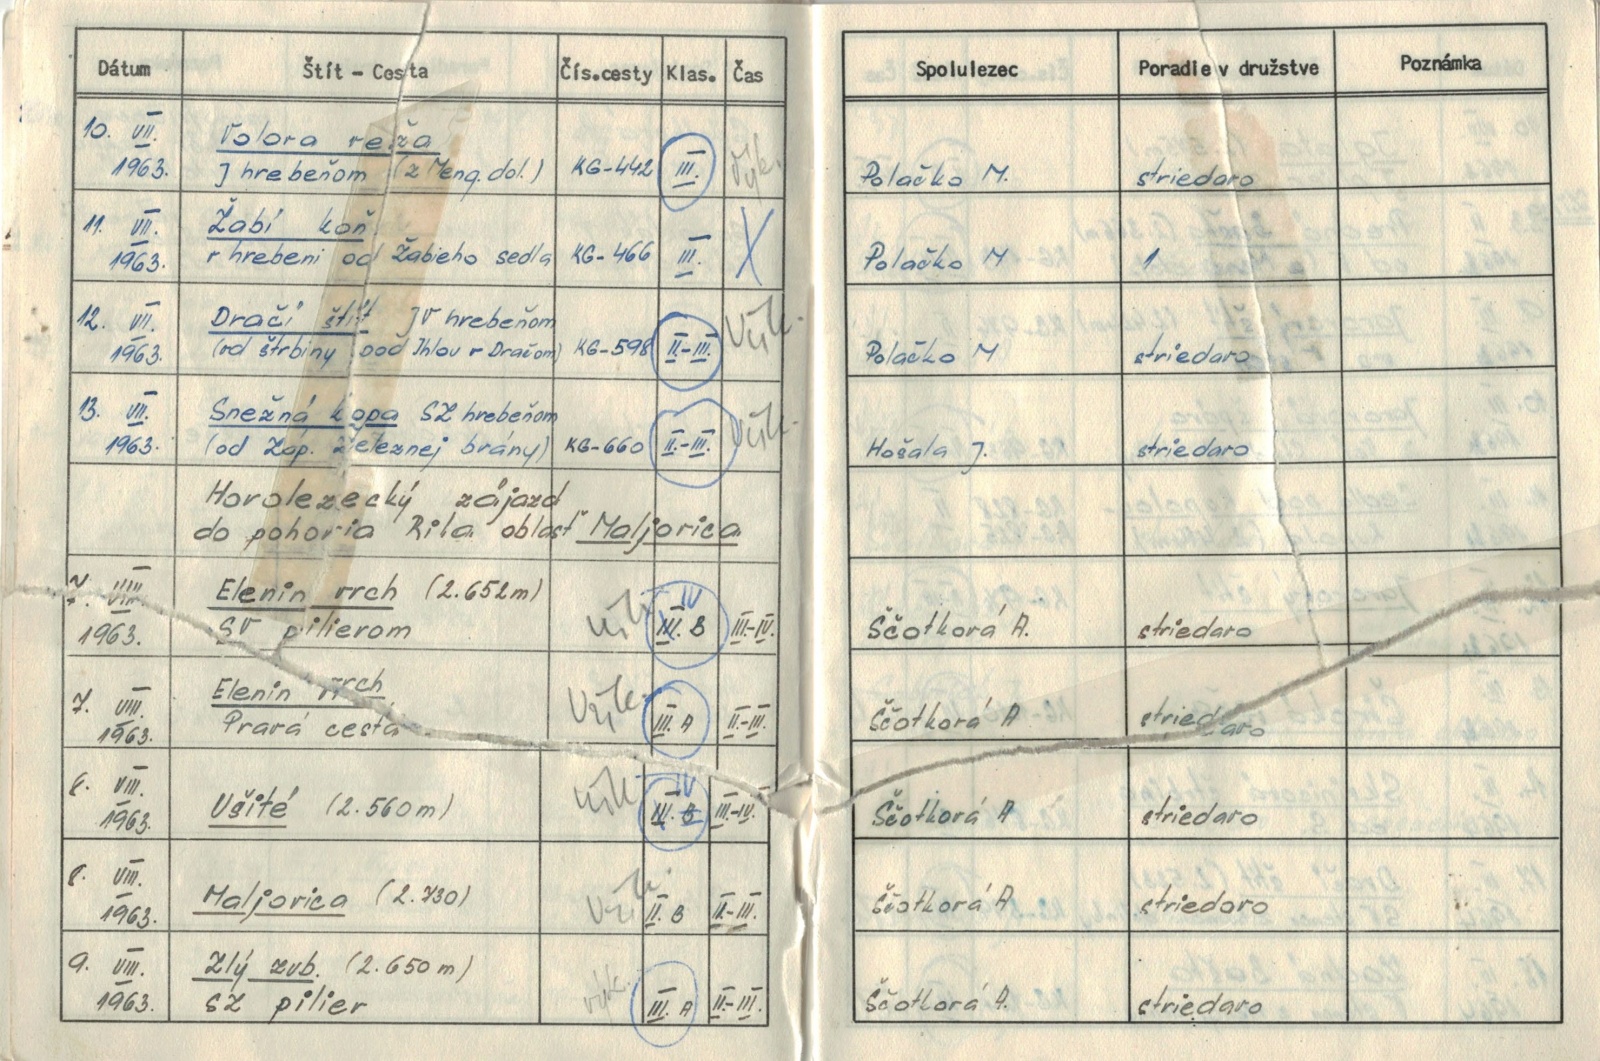 Dátum Štít - Cesta Čís.cesty Klas. Čas Spolulezec Poradie v družstve Poznámka
10. VII. Volova veža
1963. J hrebeňom (z Meng. dol.) KG-442 III. Výk. Polačko M. striedavo
11. VII. Žabí kôň
1963. v hrebeni od Žabieho sedla KG-466 III. X Polačko M 1
12. VII. Dračí štít JV hrebeňom Výk.
1963. (od štrbiny pod Ihlou v Dračom) KG-598 II.-III. Polačko M striedavo
13. VII. Snežná kopa SZ hrebeňom Výk.
1963. (od Záp. Železnej brány) KG-660 II.-III. Hošala J. striedavo
Horolezecký zájazd
do pohoria Rila oblasť Maljovica
7. VIII. Elenin vrch (2.652m) IV
1963. SV pilierom výk III. B III.-IV. Ščotková A. striedavo
7. VIII. Elenin vrch
1963. Pravá cesta Výk. III. A II.-III. Ščotková A striedavo
8. VIII. výk IV
1963. Ušité (2.560m) B III.-IV. Ščotková A striedavo
8. VIII.
1963. Maljovica (2.730) Výk. II. B II.-III. Ščotková A striedavo
9. VIII. Zlý zub. (2.650m)
1963. SZ pilier výk. III. A II.-III. Ščotková A. striedavo